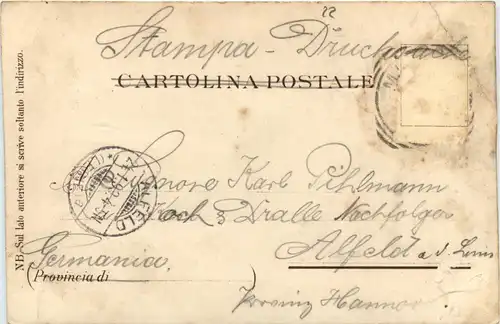 22
Stampa - Drucksache
CARTOLINA POSTALE
NB. Sul lato anteriore si scrive soltanto l'indirizzo.
ALFELD
Karl Pihlmann
Koch & Dralle Nachfolger
Alfeld a. d. Leine
Germania.
(Provincia di )
Provinz Hannover